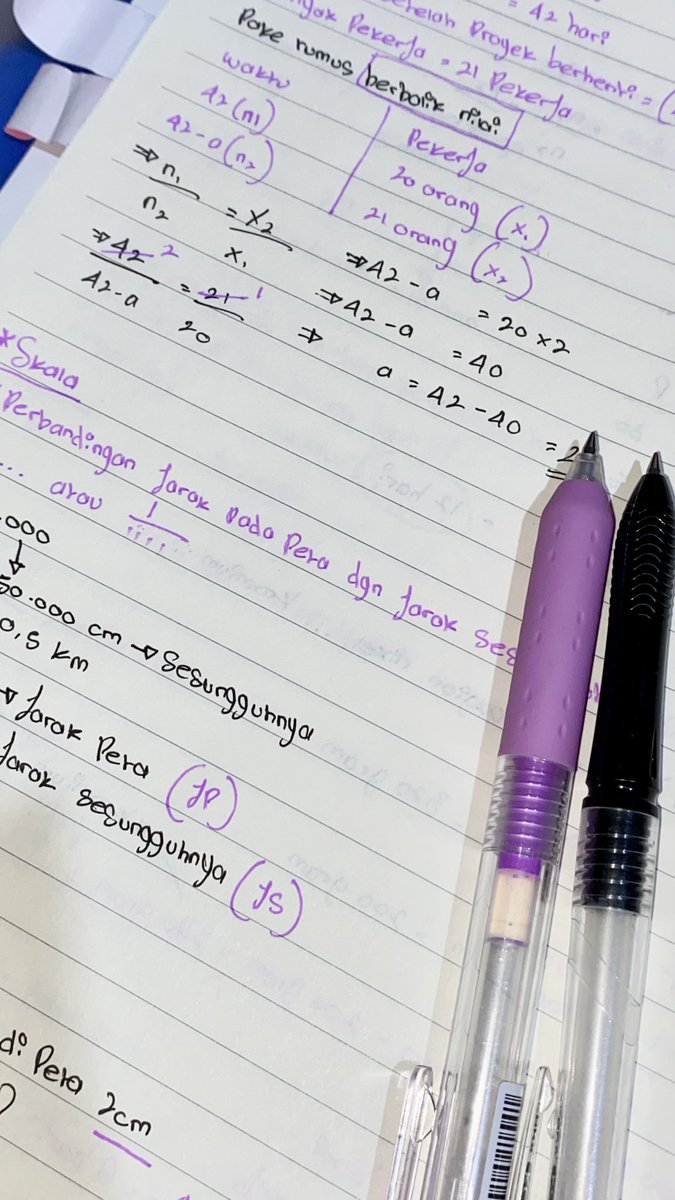 = 42 hari
Pekerja = 21 Pekerja
setelah Proyek berhenti = (
Pake rumus berbalik nilai
waktu
Pekerja
42 (n1)
20 orang (x1)
42-a (n2)
21 orang (x2)
⇒ n1/n2 = x2/x1
⇒ 42 - a = 20 x 2
⇒ 42 2/42-a = 21 1/20
⇒ 42 - a = 40
⇒ a = 42 - 40 = 2
*Skala
Perbandingan Jarak pada Peta dgn Jarak
... atau 1/.....
.000
↓
50.000 cm → sesungguhnya
0,5 km
→ Jarak Peta (JP)
Jarak sesungguhnya (JS)
di Peta 2cm